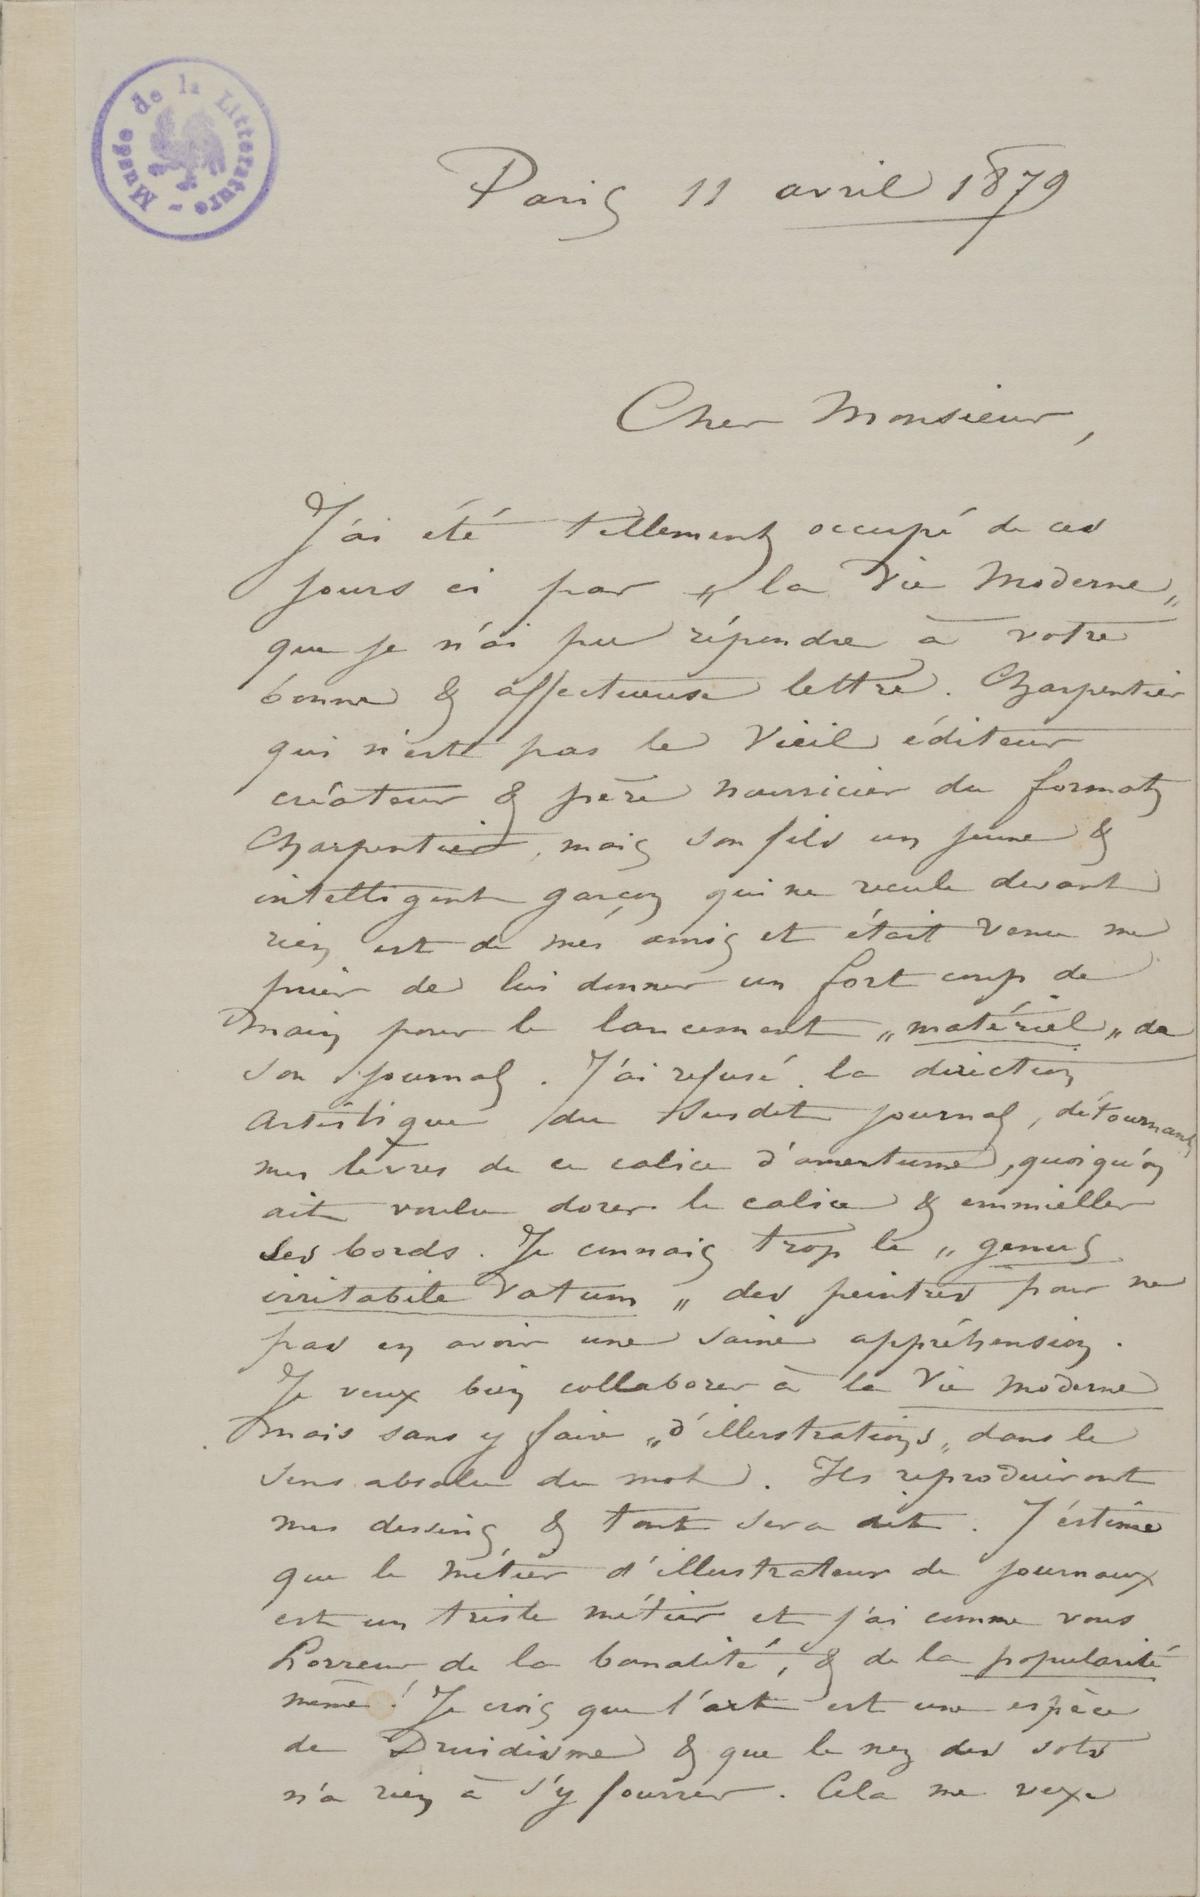 Musée de la Littérature -
Paris 11 avril 1879
Cher Monsieur,
J'ai été tellement occupé de ces
jours ci par „ la Vie Moderne „
que je n'ai pu répondre à votre
bonne & affectueuse lettre. Charpentier
qui n'est pas le Vieil éditeur
créateur & père nourricier du format
Charpentier, mais son fils un jeune &
intelligent garçon qui ne recule devant
rien est de mes amis et était venu me
prier de lui donner un fort coup de
main pour le lancement „ matériel „ de
son journal. J'ai refusé la direction
artistique du susdit journal, détournant
mes lèvres de ce calice d'amertume, quoiqu'on
ait voulu dorer le calice & emmieller
ses bords. Je connais trop le „ genus
irritabile vatum „ des peintres pour ne
pas en avoir une saine appréhension.
Je veux bien collaborer à la Vie Moderne
mais sans y faire „ d'illustrations „ dans le
sens absolu du mot. Ils reproduiront
mes dessins & tout sera dit. J'estime
que le métier d'illustrateur de journaux
est un triste métier et j'ai comme vous
horreur de la banalité, & de la popularité
même! Je crois que l'art est une espèce
de Druidisme & que le nez des sots
n'a rien à s'y fourrer. Cela me vexe